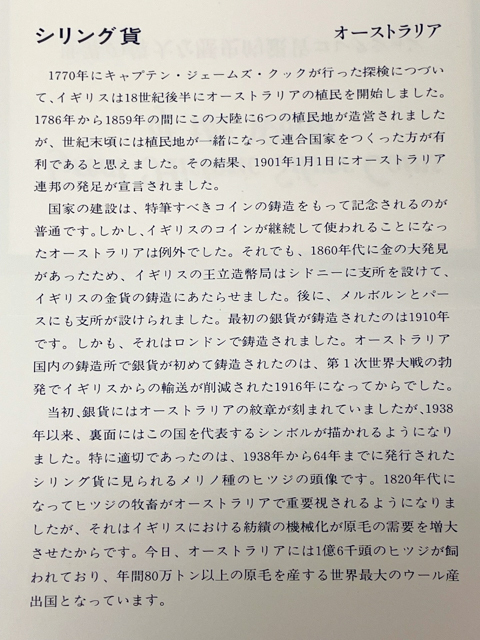 シリング貨 オーストラリア
1770年にキャプテン・ジェームズ・クックが行った探検につづい
て、イギリスは18世紀後半にオーストラリアの植民を開始しました。
1786年から1859年の間にこの大陸に6つの植民地が造営されました
が、世紀末頃には植民地が一緒になって連合国家をつくった方が有
利であると思えました。その結果、1901年1月1日にオーストラリア
連邦の発足が宣言されました。
国家の建設は、特筆すべきコインの鋳造をもって記念されるのが
普通です。しかし、イギリスのコインが継続して使われることになっ
たオーストラリアは例外でした。それでも、1860年代に金の大発見
があったため、イギリスの王立造幣局はシドニーに支所を設けて、
イギリスの金貨の鋳造にあたらせました。後に、メルボルンとパー
スにも支所が設けられました。最初の銀貨が鋳造されたのは1910年
です。しかも、それはロンドンで鋳造されました。オーストラリア
国内の鋳造所で銀貨が初めて鋳造されたのは、第1次世界大戦の勃
発でイギリスからの輸送が削減された1916年になってからでした。
当初、銀貨にはオーストラリアの紋章が刻まれていましたが、1938
年以来、裏面にはこの国を代表するシンボルが描かれるようになり
ました。特に適切であったのは、1938年から64年までに発行された
シリング貨に見られるメリノ種のヒツジの頭像です。1820年代に
なってヒツジの牧畜がオーストラリアで重要視されるようになりま
したが、それはイギリスにおける紡績の機械化が原毛の需要を増大
させたからです。今日、オーストラリアには1億6千頭のヒツジが飼
われており、年間80万トン以上の原毛を産する世界最大のウール産
出国となっています。